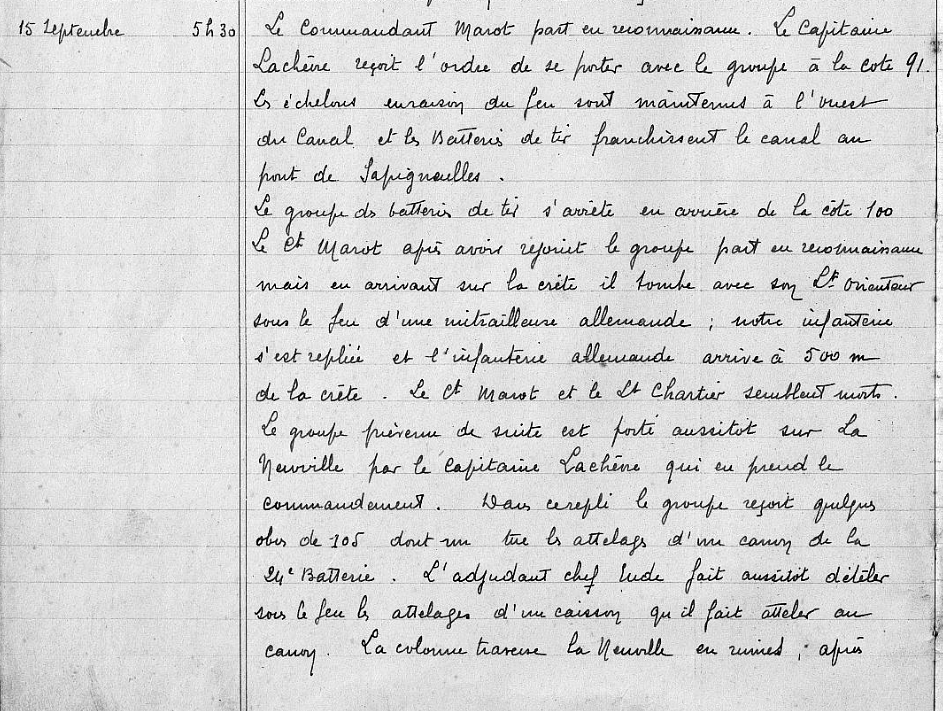 15 Septembre 5h30 Le Commandant Marot part en reconnaissance. Le Capitaine
Lachèvre reçoit l'ordre de se porter avec le groupe à la cote 91.
Les échelons en raison du feu sont maintenus à l'ouest
du Canal et les Batteries de tir franchissent le canal au
pont de Sapigneulles.
Le groupe des batteries de tir s'arrête en arrière de la côte 100
Le Ct Marot après avoir rejoint le groupe part en reconnaissance
mais en arrivant sur la crête il tombe avec son Lt orienteur
sous le feu d'une mitrailleuse allemande ; notre infanterie
s'est repliée et l'infanterie allemande arrive à 500 m
de la crête. Le Ct Marot et le Lt Chartier semblent morts.
Le groupe prévenu de suite est porté aussitôt sur La
Neuville par le Capitaine Lachèvre qui en prend le
commandement. Dans ce repli le groupe reçoit quelques
obus de 105 dont un tue les attelages d'un canon de la
24e Batterie. L'adjudant chef Eude fait aussitôt dételer
sous le feu les attelages d'un caisson qu'il fait atteler au
canon. La colonne traverse la Neuville en ruines ; après